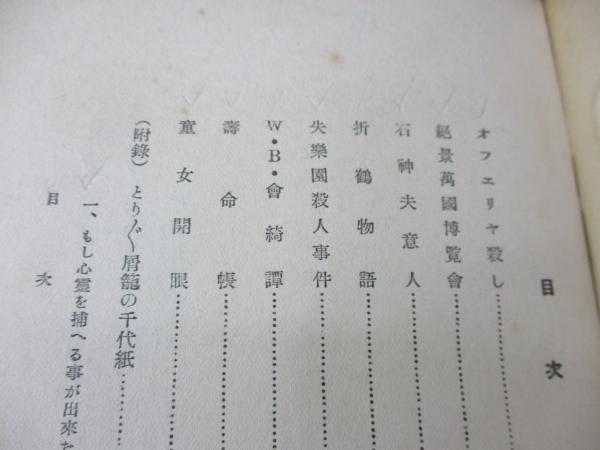 目次
オフエリヤ殺し
絕景萬國博覽會
石神夫意人
折鶴物語
失樂園殺人事件
W・B・會綺譚
壽命帳
童女開眼
(附錄) とり〴〵屑籠の千代紙
一、もし心靈を捕へる事が出來た
目次